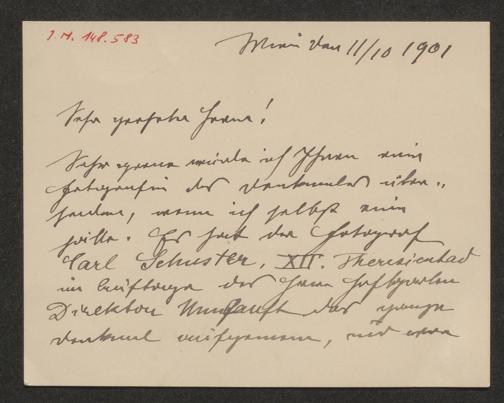 J.N. 148.583
Wien den 11/10 1901
Sehr geehrter Herr!
Sehr gerne würde ich Ihnen eine
Fotografie des Denkmales über-
senden, wenn ich selbst eine
hätte. Es hat der Fotograf
Carl Schuster, XII. Theresienbad
im Auftrage des Herrn
Direktor das ganze
Denkmal aufgenommen, und